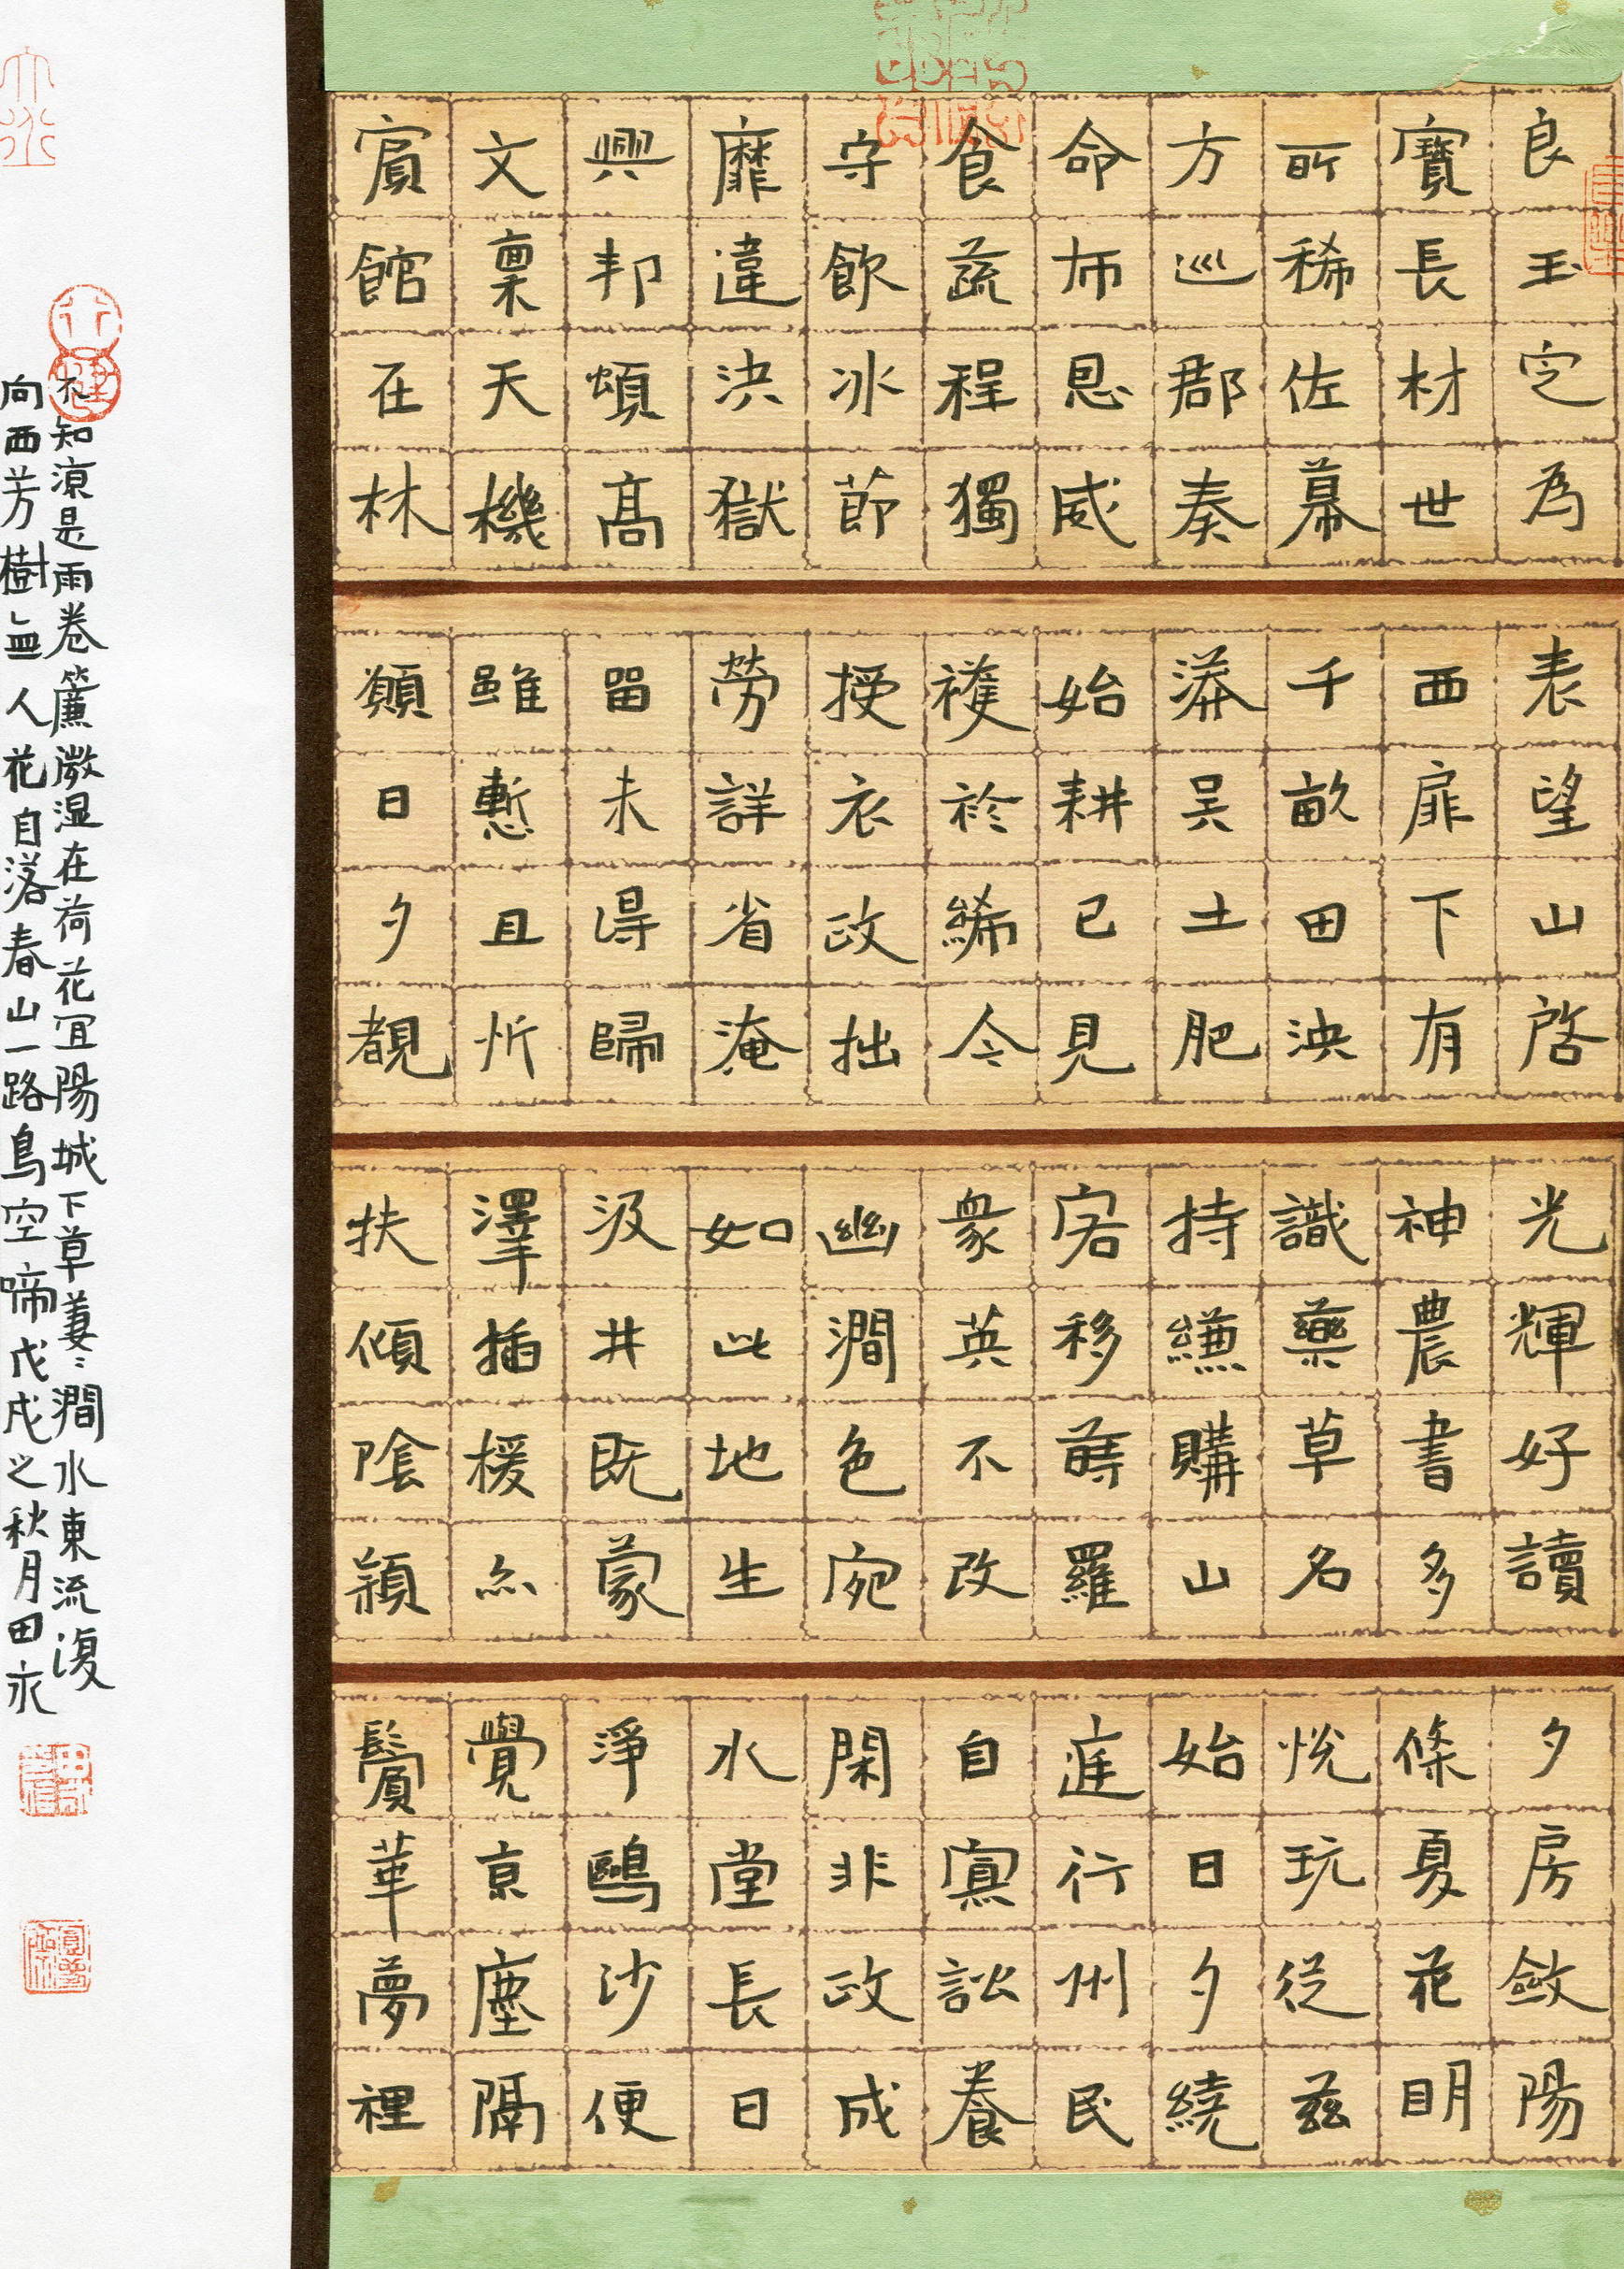 良玉定為
寶長材世
所稀佐幕
方巡郡奏
命布恩威
食蔬程獨
守飲冰節
靡違決獄
興邦頌高
文稟天機
賓館在林
表望山啓
西扉下有
千畝田泱
漭吳土肥
始耕已見
穫袗絺今
授衣政拙
勞詳省淹
留未得歸
雖慙且忻
願日夕覩
光輝好讀
神農書多
識藥草名
持縑購山
客移蒔羅
衆英不改
幽澗色宛
如此地生
汲井既蒙
澤插楥亦
扶傾陰穎
夕房斂陽
條夏花明
悅玩從茲
始日夕繞
庭行州民
自寡訟養
閑非政成
水堂長日
淨鷗沙便
覺京塵隔
鬢華夢裡
不知涼是雨卷簾微湿在荷花宜陽城下草萋〻澗水東流復
向西芳樹無人花自落春山一路鳥空啼戊戌之秋月田永